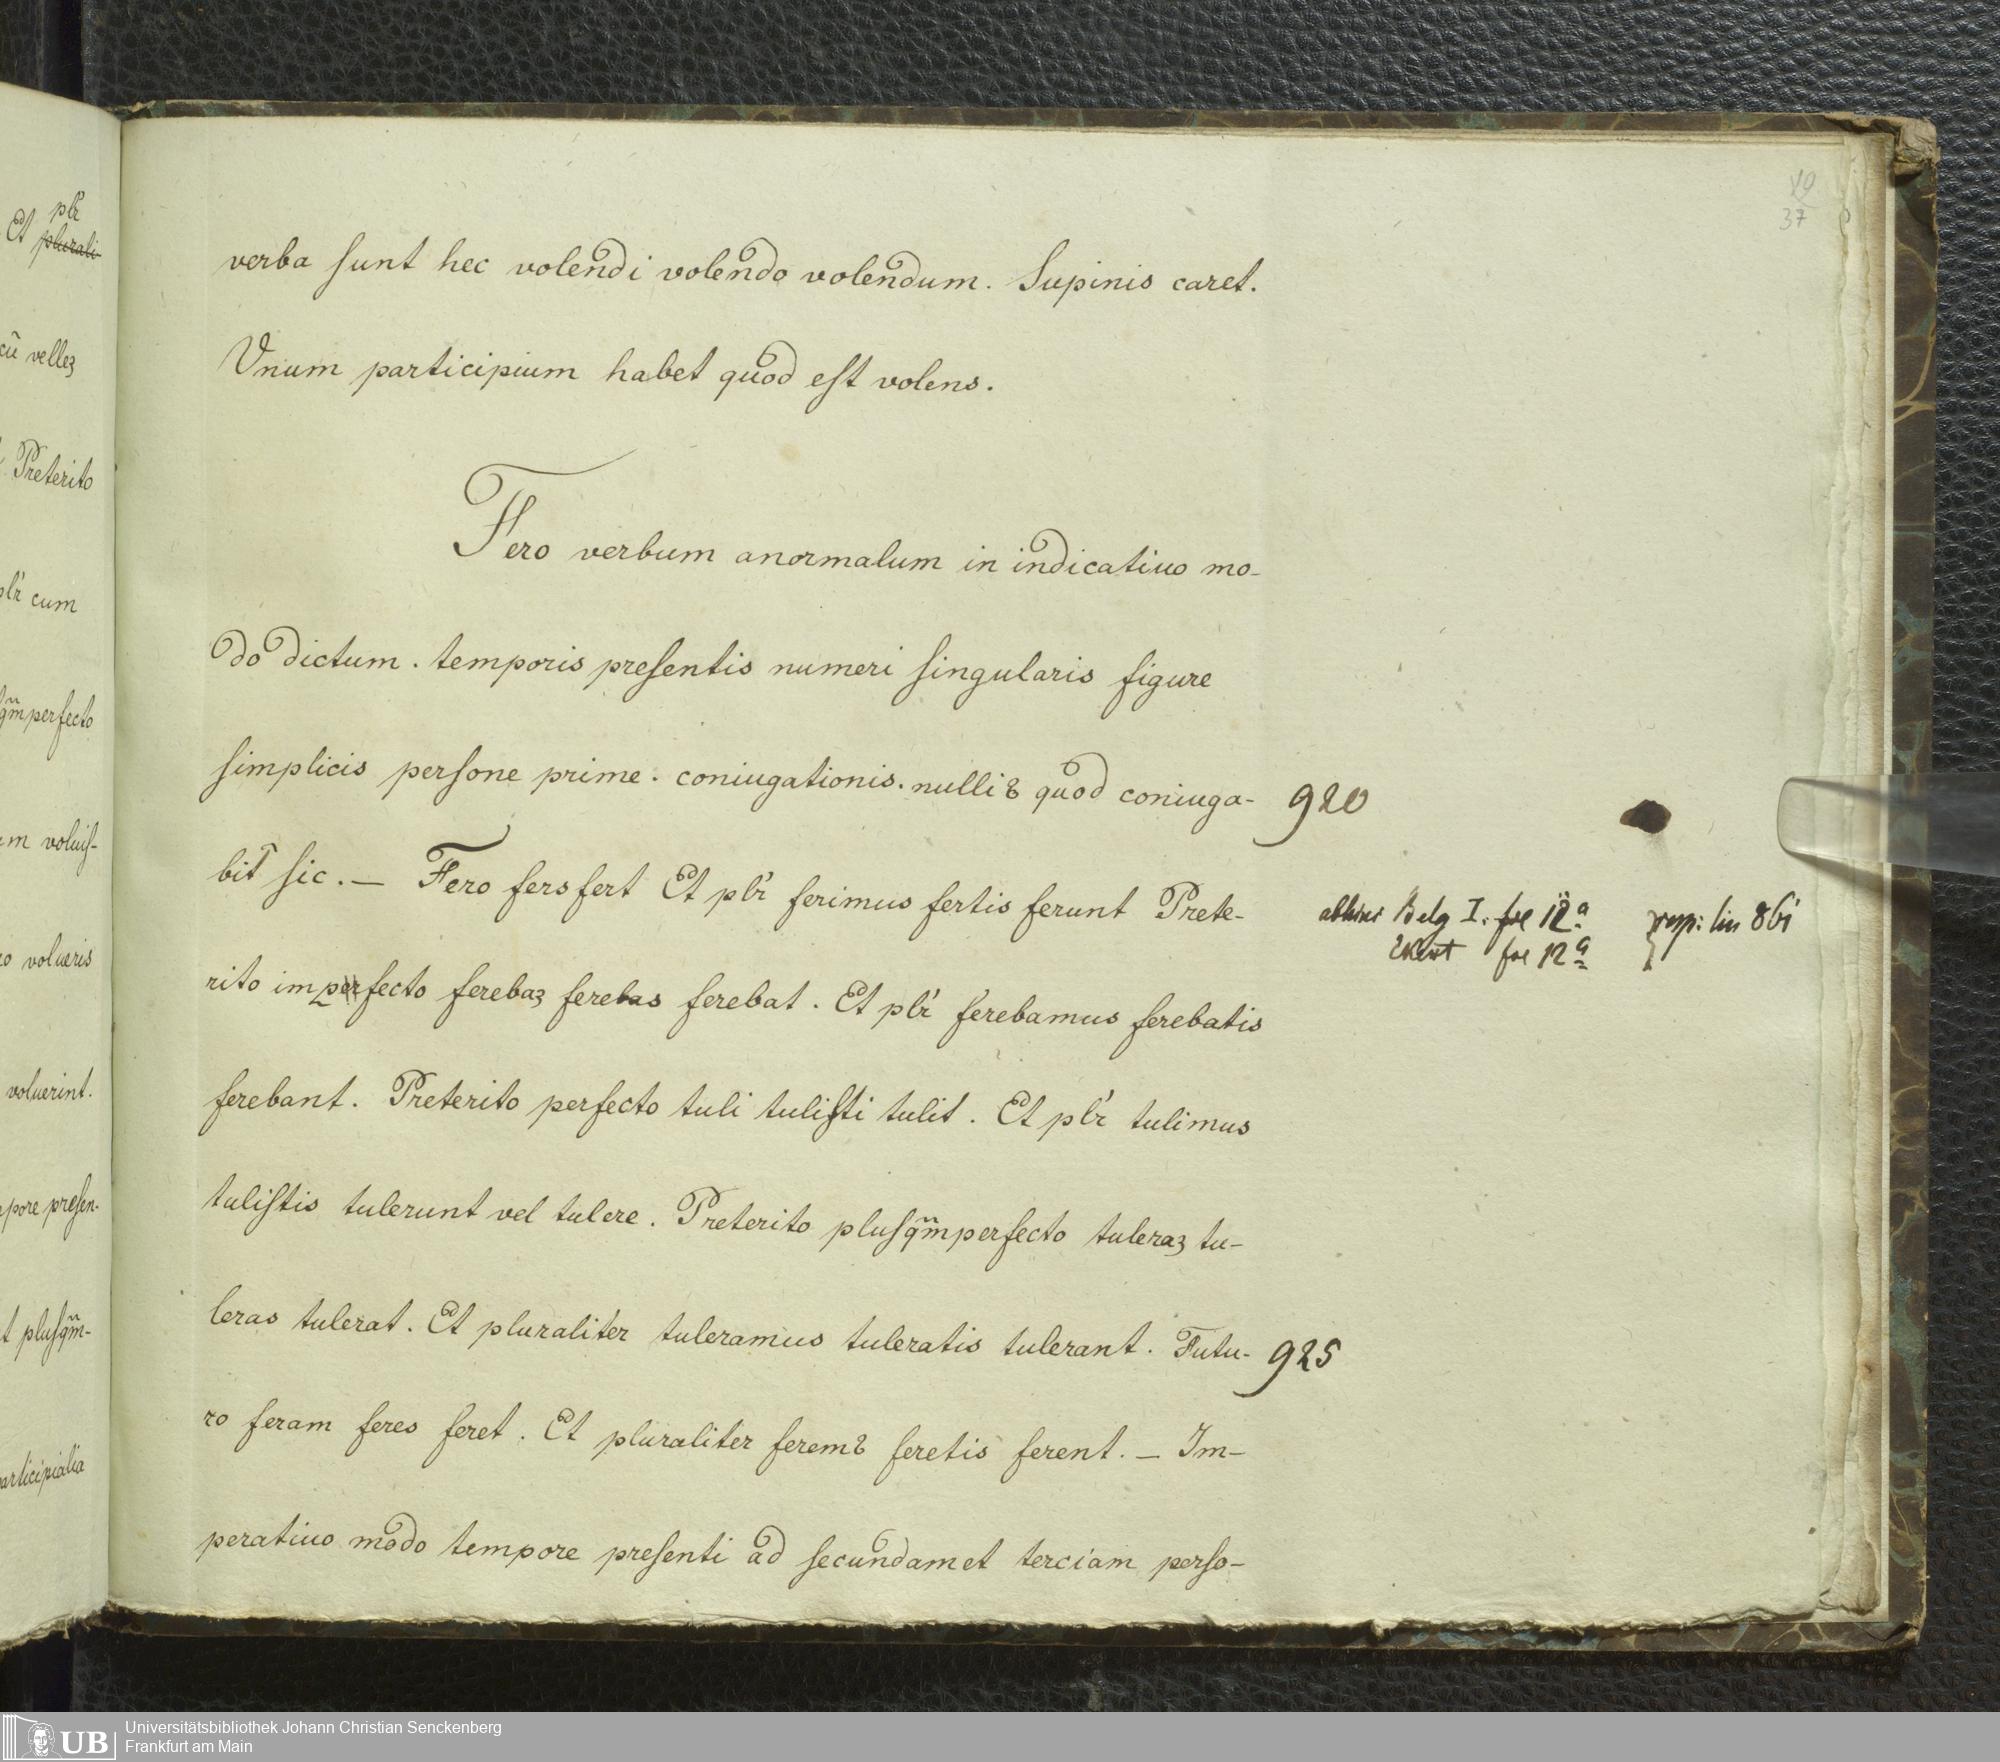 Et plr plurali-
cũ velleꝫ
Preterito
plr cum
qm̃perfecto
m voluiſ-
o volueris
voluerint.
pore preſen-
t pluſqm̃-
articipialia
19
37
verba ſunt hec volendi volendo volendum. Supinis caret.
Vnum participium habet quod eſt volens.
Fero verbum anormalum in indicatiuo mo-
do dictum. temporis preſentis numeri ſingularis figure
ſimplicis perſone prime. coniugationis. nulliꝰ quod coniuga- 920
bit̃ ſic. — Fero fers fert Et plr ferimus fertis ferunt Prete-
Belg I. foe 12ª
foe 12ª
resp: lin 861
rito imperfecto ferebaꝫ ferebas ferebat. Et plr ferebamus ferebatis
ferebant. Preterito perfecto tuli tuliſti tulit. Et plr tulimus
tuliſtis tulerunt vel tulere. Preterito pluſqm̃perfecto tuleraꝫ tu-
leras tulerat. Et pluraliter tuleramus tuleratis tulerant. Futu- 925
ro feram feres feret. Et pluraliter feremꝰ feretis ferent. — Im-
peratiuo modo tempore preſenti ad secundam et terciam perso-
UB
Universitätsbibliothek Johann Christian Senckenberg
Frankfurt am Main